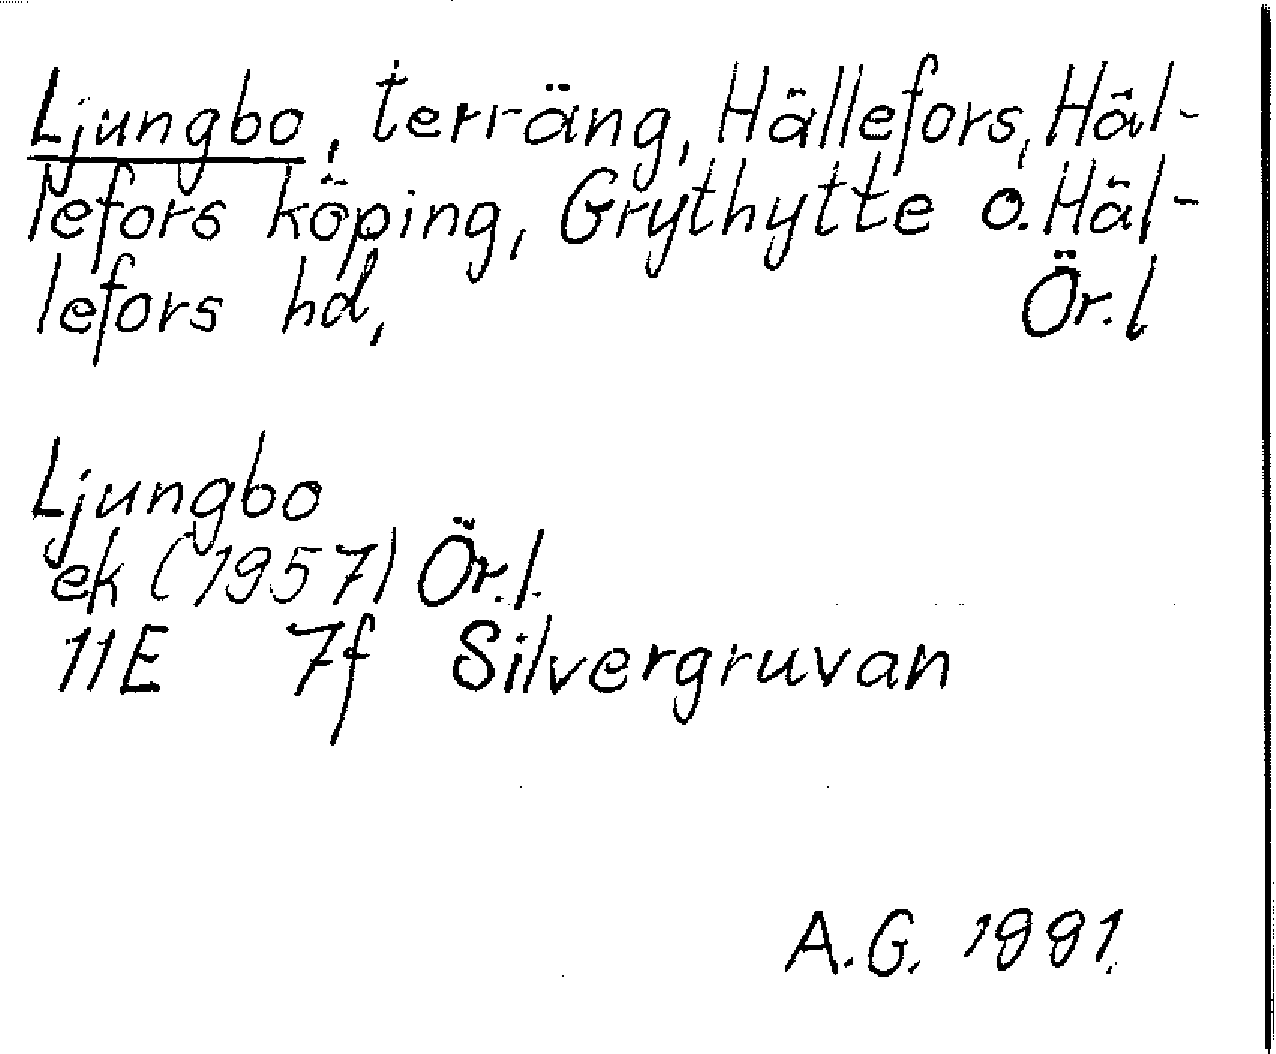 Ljungbo, terräng, Hällefors, Häl-
lefors köping, Grythytte o. Häl-
lefors hd, Ör. l
Ljungbo
ek (1957) Ör. l.
11E 7f Silvergruvan
A.G. 1991.